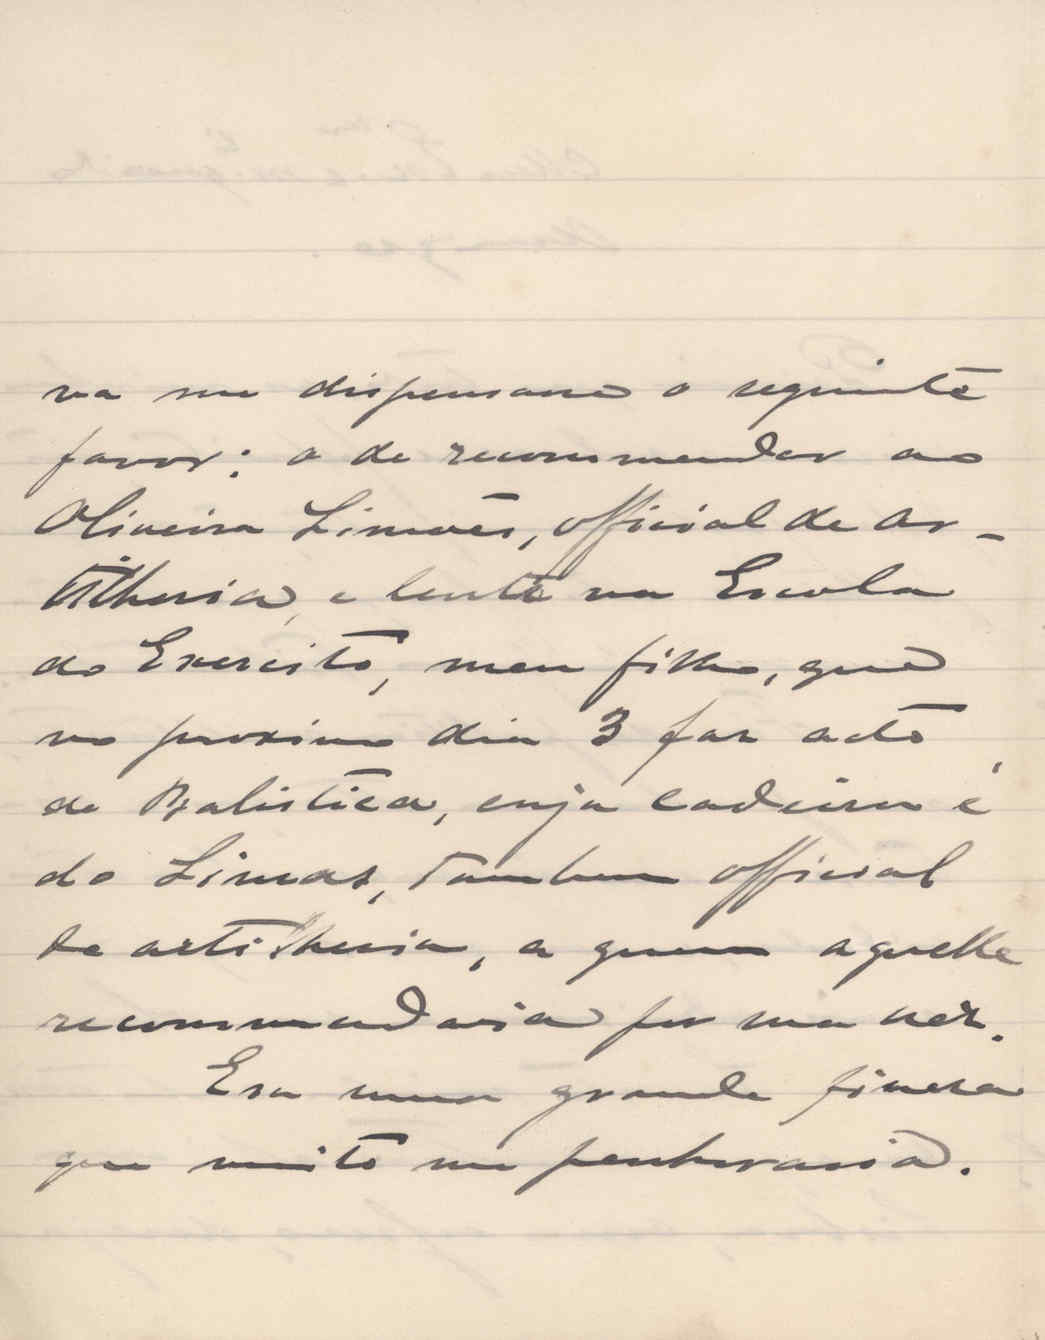 va me dispensasse o seguinte
favor: o de recommendar ao
Oliveira Simões, official de ar-
tilheria, e lente na Escola
do Exercito, meu filho, que
no proximo dia 3 faz acto
de Balistica, cuja cadeira é
do Simas, tambem official
de artilheria, a quem aquelle
recommendaria por sua vez.
Era uma grande fineza
que muito me penhoraria.